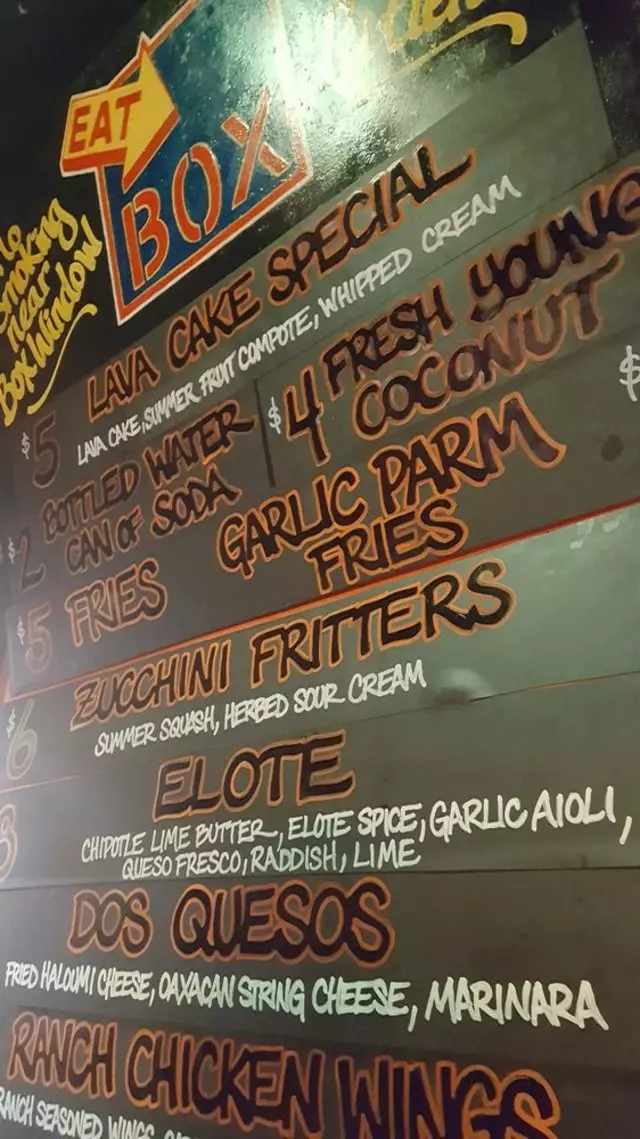 EAT
BOX
No
Smoking
near
Box Window
LAVA CAKE SPECIAL
$5 LAVA CAKE, SUMMER FRUIT COMPOTE, WHIPPED CREAM
$2 BOTTLED WATER
CAN OF SODA
$4 FRESH YOUNG
COCONUT
$
$5 FRIES
GARLIC PARM
FRIES
$6 ZUCCHINI FRITTERS
SUMMER SQUASH, HERBED SOUR CREAM
ELOTE
CHIPOTLE LIME BUTTER, ELOTE SPICE, GARLIC AIOLI,
QUESO FRESCO, RADDISH, LIME
DOS QUESOS
FRIED HALOUMI CHEESE, OAXACAN STRING CHEESE, MARINARA
RANCH CHICKEN WINGS
RANCH SEASONED WINGS,